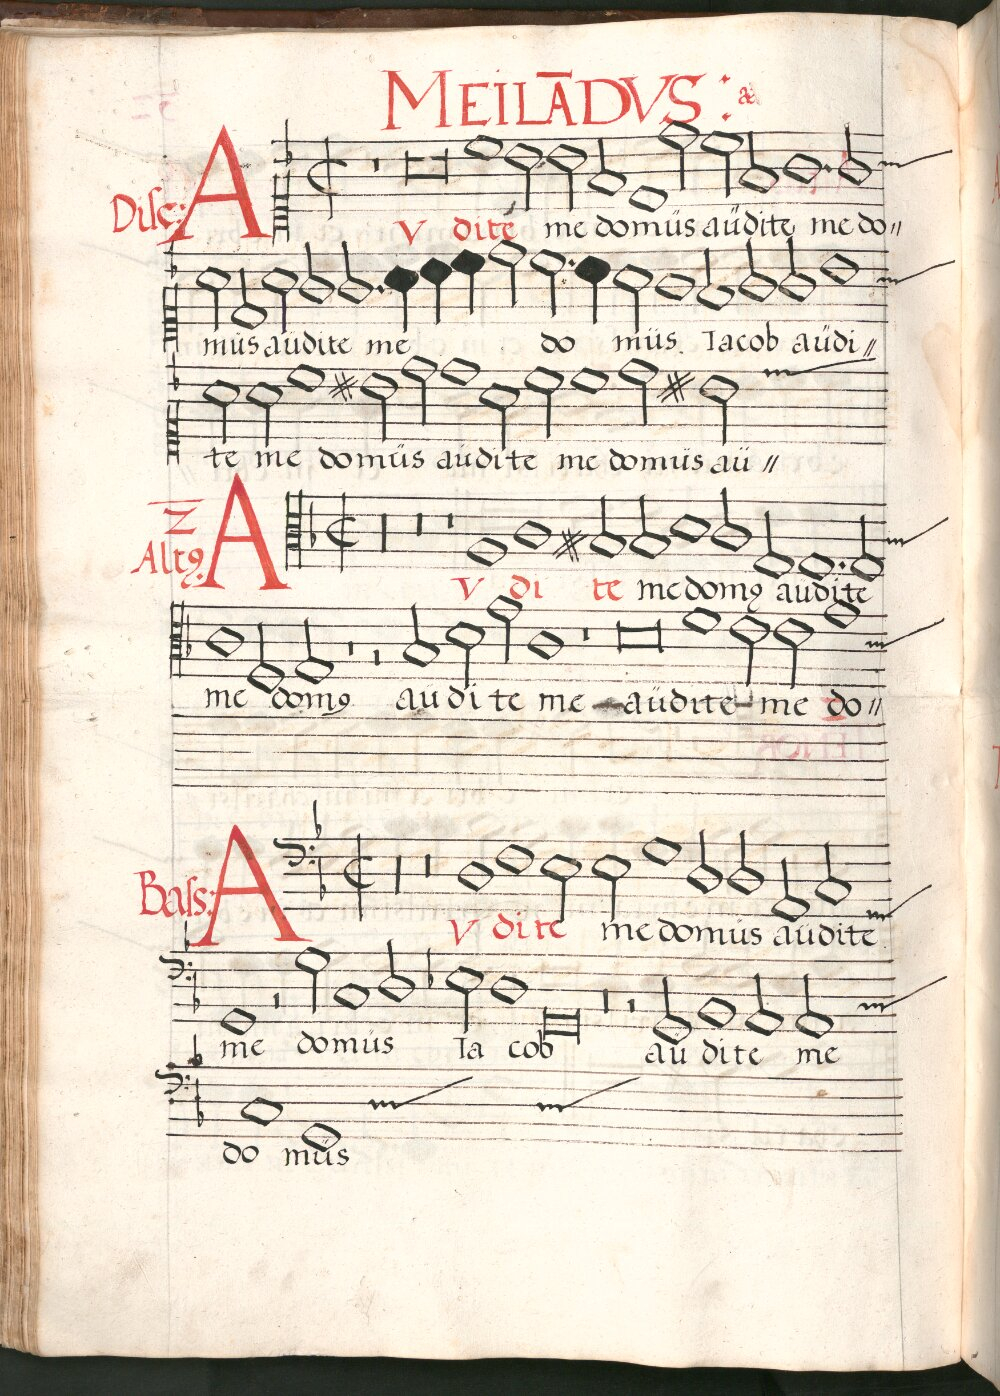 MEILĀDVS :
Disc: A V dite me domüs aüdite me do〃
müs aüdite me do müs. Iacob aüdi〃
te me domüs aüdite me domüs aü〃
2 Altꝰ A V di te me domꝰ audite
me domꝰ aüdite me aüdite me do〃
Bass: A V dite me domüs aüdite
me domüs Ia cob aü dite me
do müs